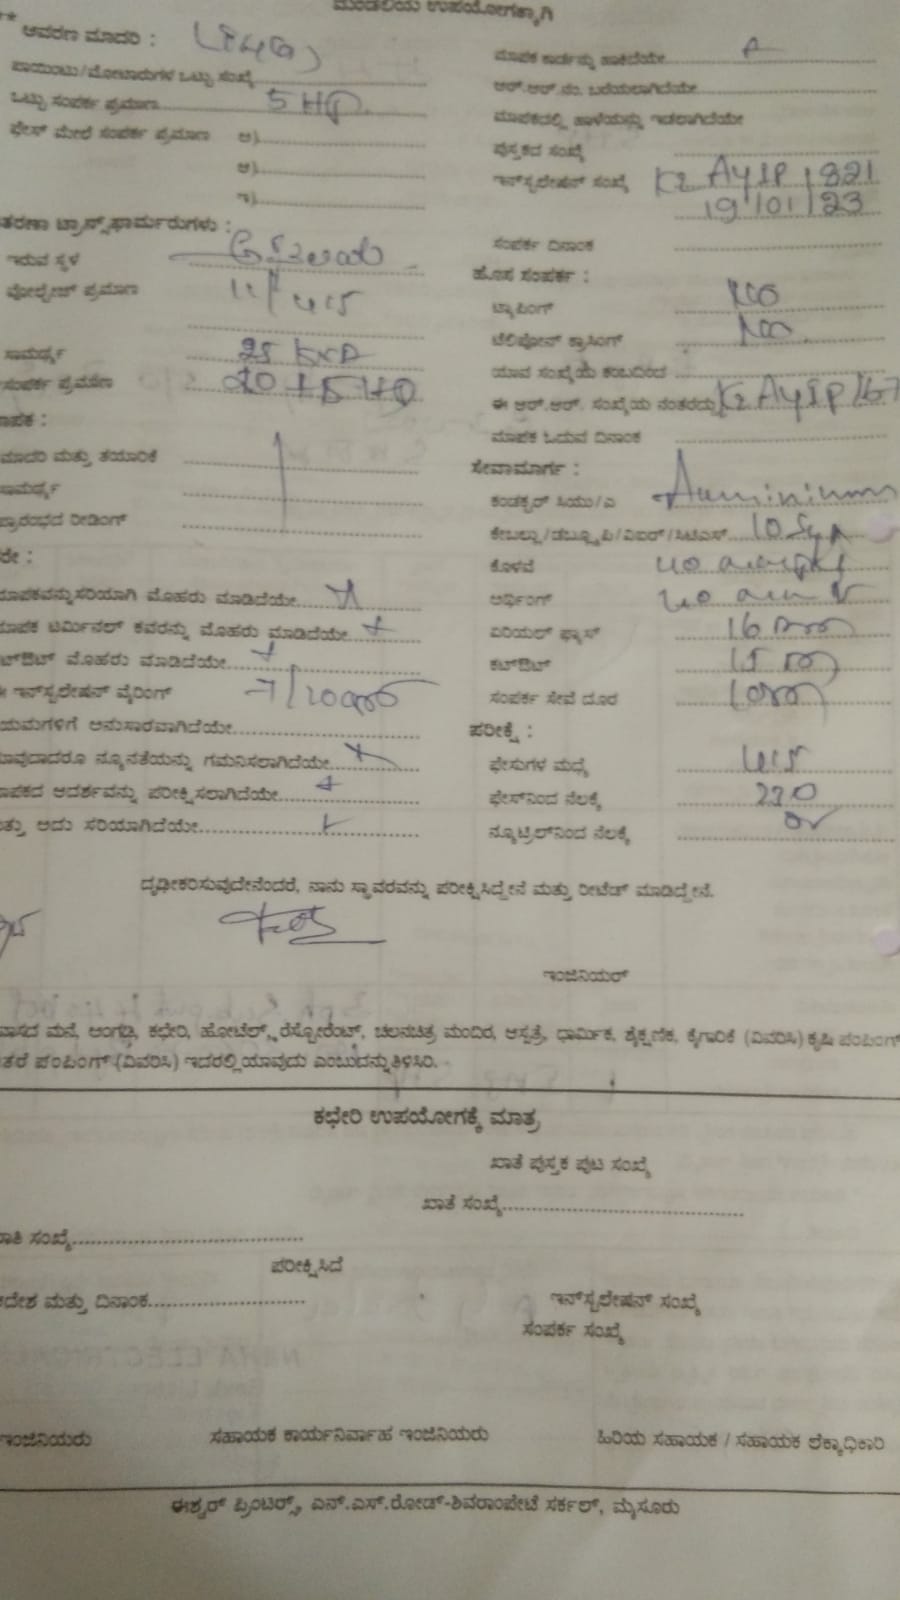 ಮಂಡಲಿಯ ಉಪಯೋಗಕ್ಕಾಗಿ
** ಆವರಣ ಮಾದರಿ :
ಪಾಯಿಂಟು/ಮೋಟಾರುಗಳ ಒಟ್ಟು ಸಂಖ್ಯೆ
ಒಟ್ಟು ಸಂಪರ್ಕ ಪ್ರಮಾಣ 5 HP
ಫೇಸ್ ಮೇಲೆ ಸಂಪರ್ಕ ಪ್ರಮಾಣ ಅ)
ಆ)
ಇ)
ತರಣಾ ಟ್ರಾನ್ಸ್‌ಫಾರ್ಮರುಗಳು :
ಇರುವ ಸ್ಥಳ
ವೋಲ್ಟೇಜ್ ಪ್ರಮಾಣ 11/415
ಸಾಮರ್ಥ್ಯ 25 KVA
ಸಂಪರ್ಕ ಪ್ರಮಾಣ 20+5 HP
ಾಪಕ :
ಮಾದರಿ ಮತ್ತು ತಯಾರಿಕೆ
ಸಾಮರ್ಥ್ಯ
ಪ್ರಾರಂಭದ ರೀಡಿಂಗ್
ರೇ :
ಮಾಪಕವನ್ನು ಸರಿಯಾಗಿ ಮೊಹರು ಮಾಡಿದೆಯೇ
ಮಾಪಕ ಟರ್ಮಿನಲ್ ಕವರನ್ನು ಮೊಹರು ಮಾಡಿದೆಯೇ
ಟ್‌ಔಟ್ ಮೊಹರು ಮಾಡಿದೆಯೇ
ಈ ಇನ್‌ಸ್ಟಲೇಷನ್ ವೈರಿಂಗ್
ಯಮಗಳಿಗೆ ಅನುಸಾರವಾಗಿದೆಯೇ
ಯಾವುದಾದರೂ ನ್ಯೂನತೆಯನ್ನು ಗಮನಿಸಲಾಗಿದೆಯೇ
ಮಾಪಕದ ಆದರ್ಶವನ್ನು ಪರೀಕ್ಷಿಸಲಾಗಿದೆಯೇ
ತ್ತು ಅದು ಸರಿಯಾಗಿದೆಯೇ
ಮಾಪಕ ಕಾರ್ಡನ್ನು ಹಾಕಿದೆಯೇ
ಆರ್.ಆರ್.ನಂ. ಬರೆಯಲಾಗಿದೆಯೇ
ಮಾಪಕದಲ್ಲಿ ಹಾಳೆಯನ್ನು ಇಡಲಾಗಿದೆಯೇ
ಪುಸ್ತಕದ ಸಂಖ್ಯೆ
ಇನ್‌ಸ್ಟಲೇಷನ್ ಸಂಖ್ಯೆ K2 AYIP 1821
19/01/23
ಸಂಪರ್ಕ ದಿನಾಂಕ
ಹೊಸ ಸಂಪರ್ಕ :
ಟ್ಯಾಪಿಂಗ್ NO
ಟೆಲಿಫೋನ್ ಕ್ರಾಸಿಂಗ್ NO
ಯಾವ ಸಂಖ್ಯೆಯ ಕಂಬದಿಂದ
ಈ ಆರ್.ಆರ್. ಸಂಖ್ಯೆಯ ನಂತರದ್ದು K2 AYIP 167
ಮಾಪಕ ಓದುವ ದಿನಾಂಕ
ಸೇವಾಮಾರ್ಗ :
ಕಂಡಕ್ಟರ್ ಸಿಯು/ಎ Aluminium
ಕೇಬಲ್ಲು/ಡಬ್ಲ್ಯೂಪಿ/ವಿಐಆರ್/ಸಿಟಿಎಸ್ 10
ಕೊಳವೆ 40
ಅರ್ಥಿಂಗ್ 40
ಏರಿಯಲ್ ಫ್ಯೂಸ್ 16
ಕಟ್‌ಔಟ್ 15
ಸಂಪರ್ಕ ಸೇವೆ ದೂರ
ಪರೀಕ್ಷೆ :
ಫೇಸುಗಳ ಮಧ್ಯೆ 415
ಫೇಸ್‌ನಿಂದ ನೆಲಕ್ಕೆ 230
ನ್ಯೂಟ್ರಲ್‌ನಿಂದ ನೆಲಕ್ಕೆ
ದೃಢೀಕರಿಸುವುದೇನೆಂದರೆ, ನಾನು ಸ್ಥಾವರವನ್ನು ಪರೀಕ್ಷಿಸಿದ್ದೇನೆ ಮತ್ತು ರೀಟೆಡ್ ಮಾಡಿದ್ದೇನೆ.
ಇಂಜಿನಿಯರ್
ವಾಸದ ಮನೆ, ಅಂಗಡಿ, ಕಛೇರಿ, ಹೋಟೆಲ್, ರೆಸ್ಟೋರೆಂಟ್, ಚಲನಚಿತ್ರ ಮಂದಿರ, ಆಸ್ಪತ್ರೆ, ಧಾರ್ಮಿಕ, ಶೈಕ್ಷಣಿಕ, ಕೈಗಾರಿಕೆ (ವಿವರಿಸಿ) ಕೃಷಿ ಪಂಪಿಂಗ್
ತರೆ ಪಂಪಿಂಗ್ (ವಿವರಿಸಿ) ಇದರಲ್ಲಿ ಯಾವುದು ಎಂಬುದನ್ನು ತಿಳಿಸಿರಿ.
ಕಛೇರಿ ಉಪಯೋಗಕ್ಕೆ ಮಾತ್ರ
ಖಾತೆ ಪುಸ್ತಕ ಪುಟ ಸಂಖ್ಯೆ
ಖಾತೆ ಸಂಖ್ಯೆ
ಾತಿ ಸಂಖ್ಯೆ
ಪರೀಕ್ಷಿಸಿದೆ
ಆದೇಶ ಮತ್ತು ದಿನಾಂಕ
ಇನ್‌ಸ್ಟಲೇಷನ್ ಸಂಖ್ಯೆ
ಸಂಪರ್ಕ ಸಂಖ್ಯೆ
ಇಂಜಿನಿಯರು ಸಹಾಯಕ ಕಾರ್ಯನಿರ್ವಾಹ ಇಂಜಿನಿಯರು ಹಿರಿಯ ಸಹಾಯಕ / ಸಹಾಯಕ ಲೆಕ್ಕಾಧಿಕಾರಿ
ಈಶ್ವರ್ ಪ್ರಿಂಟರ್ಸ್, ಎನ್.ಎಸ್.ರೋಡ್-ಶಿವರಾಂಪೇಟೆ ಸರ್ಕಲ್, ಮೈಸೂರು